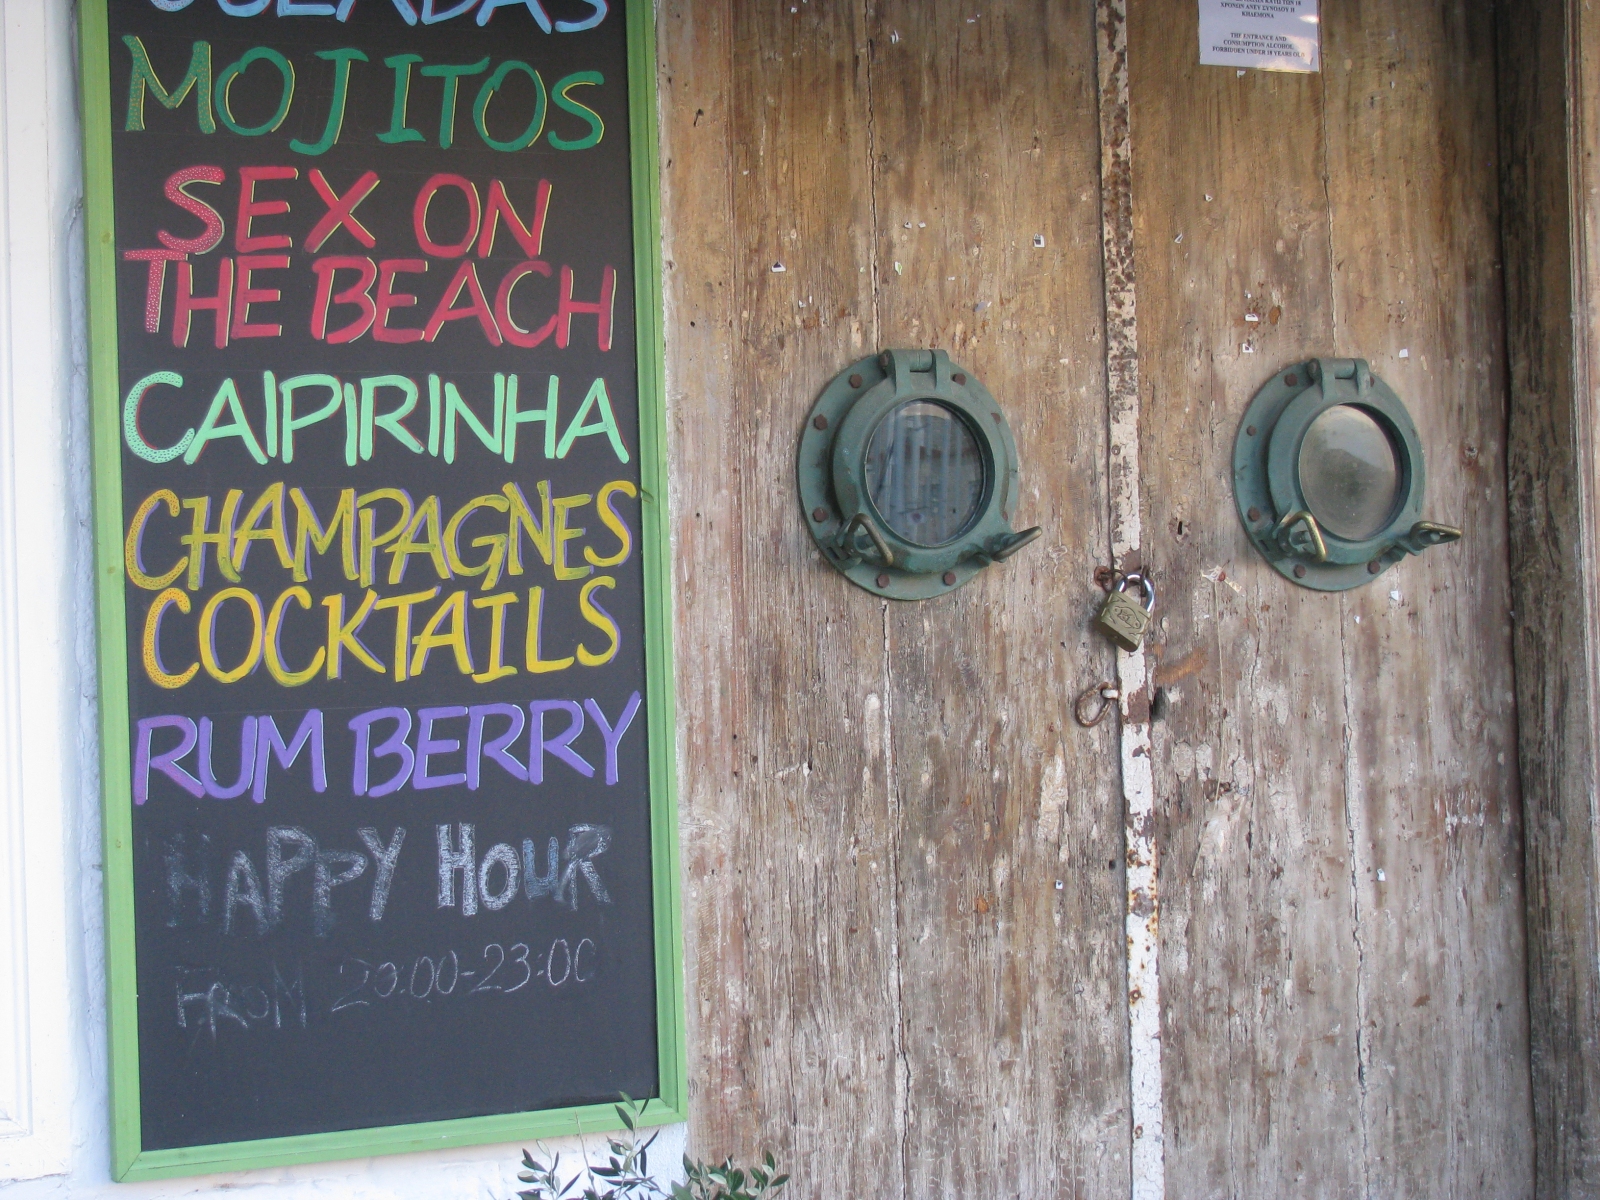 MOJITOS
SEX ON
THE BEACH
CAIPIRINHA
CHAMPAGNES
COCKTAILS
RUM BERRY
HAPPY HOUR
FROM 20:00-23:00
ΧΡΟΝΩΝ ΑΝΕΥ ΣΥΝΟΔΟΥ Η
ΚΗΔΕΜΟΝΑ
THE ENTRANCE AND
CONSUMPTION ALCOHOL
FORBIDEN UNDER 18 YEARS OLD